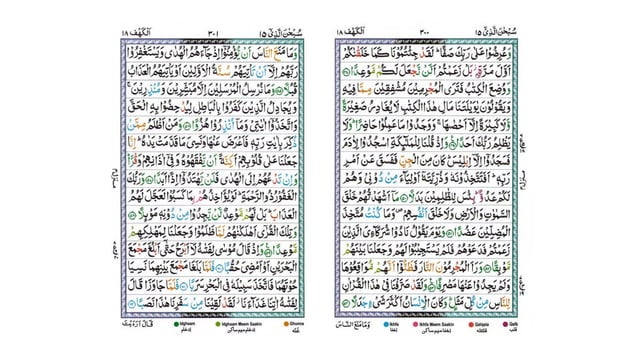 سُبْحٰنَ الَّذِيْٓ ١٥ ٣٠٠ اَلْكَهْف ١٨
وَعُرِضُوْا عَلٰى رَبِّكَ صَفًّاؕ لَقَدْ جِئْتُمُوْنَا كَمَا خَلَقْنٰكُمْ
اَوَّلَ مَرَّةٍۭ ؗ بَلْ زَعَمْتُمْ اَلَّنْ نَّجْعَلَ لَكُمْ مَّوْعِدًا ۝
وَوُضِعَ الْكِتٰبُ فَتَرَى الْمُجْرِمِيْنَ مُشْفِقِيْنَ مِمَّا فِيْهِ
وَيَقُوْلُوْنَ يٰوَيْلَتَنَا مَالِ هٰذَا الْكِتٰبِ لَا يُغَادِرُ صَغِيْرَةً
وَّلَا كَبِيْرَةً اِلَّاۤ اَحْصٰىهَاۚ وَوَجَدُوْا مَا عَمِلُوْا حَاضِرًاؕ وَلَا
يَظْلِمُ رَبُّكَ اَحَدًا ۝ وَاِذْ قُلْنَا لِلْمَلٰٓئِكَةِ اسْجُدُوْا لِاٰدَمَ
فَسَجَدُوْۤا اِلَّاۤ اِبْلِيْسَؕ كَانَ مِنَ الْجِنِّ فَفَسَقَ عَنْ اَمْرِ
رَبِّهٖؕ اَفَتَتَّخِذُوْنَهٗ وَذُرِّيَّتَهٗۤ اَوْلِيَآءَ مِنْ دُوْنِيْ وَهُمْ
لَكُمْ عَدُوٌّؕ بِئْسَ لِلظّٰلِمِيْنَ بَدَلًا ۝ مَاۤ اَشْهَدْتُّهُمْ خَلْقَ
السَّمٰوٰتِ وَالْاَرْضِ وَلَا خَلْقَ اَنْفُسِهِمْ۪ وَمَا كُنْتُ مُتَّخِذَ
الْمُضِلِّيْنَ عَضُدًا ۝ وَيَوْمَ يَقُوْلُ نَادُوْا شُرَكَآءِيَ الَّذِيْنَ
زَعَمْتُمْ فَدَعَوْهُمْ فَلَمْ يَسْتَجِيْبُوْا لَهُمْ وَجَعَلْنَا بَيْنَهُمْ
مَّوْبِقًا ۝ وَرَاَ الْمُجْرِمُوْنَ النَّارَ فَظَنُّوْۤا اَنَّهُمْ مُّوَاقِعُوْهَا
وَلَمْ يَجِدُوْا عَنْهَا مَصْرِفًا ۝ وَلَقَدْ صَرَّفْنَا فِيْ هٰذَا الْقُرْاٰنِ
لِلنَّاسِ مِنْ كُلِّ مَثَلٍؕ وَكَانَ الْاِنْسَانُ اَكْثَرَ شَيْءٍ جَدَلًا ۝
وَمَا مَنَعَ النَّاسَ
Ikhfa Ikhfa Meem Saakin Qalqala Qalb
سُبْحٰنَ الَّذِيْٓ ١٥ ٣٠١ اَلْكَهْف ١٨
وَمَا مَنَعَ النَّاسَ اَنْ يُّؤْمِنُوْۤا اِذْ جَآءَهُمُ الْهُدٰى وَيَسْتَغْفِرُوْا
رَبَّهُمْ اِلَّاۤ اَنْ تَاْتِيَهُمْ سُنَّةُ الْاَوَّلِيْنَ اَوْ يَاْتِيَهُمُ الْعَذَابُ
قُبُلًا ۝ وَمَا نُرْسِلُ الْمُرْسَلِيْنَ اِلَّا مُبَشِّرِيْنَ وَمُنْذِرِيْنَۚ
وَيُجَادِلُ الَّذِيْنَ كَفَرُوْا بِالْبَاطِلِ لِيُدْحِضُوْا بِهِ الْحَقَّ
وَاتَّخَذُوْۤا اٰيٰتِيْ وَمَاۤ اُنْذِرُوْا هُزُوًا ۝ وَمَنْ اَظْلَمُ مِمَّنْ
ذُكِّرَ بِاٰيٰتِ رَبِّهٖ فَاَعْرَضَ عَنْهَا وَنَسِيَ مَا قَدَّمَتْ يَدٰهُؕ اِنَّا
جَعَلْنَا عَلٰى قُلُوْبِهِمْ اَكِنَّةً اَنْ يَّفْقَهُوْهُ وَفِيْۤ اٰذَانِهِمْ وَقْرًاؕ
وَاِنْ تَدْعُهُمْ اِلَى الْهُدٰى فَلَنْ يَّهْتَدُوْۤا اِذًا اَبَدًا ۝ وَرَبُّكَ
الْغَفُوْرُ ذُو الرَّحْمَةِؕ لَوْ يُؤَاخِذُهُمْ بِمَا كَسَبُوْا لَعَجَّلَ لَهُمُ
الْعَذَابَؕ بَلْ لَّهُمْ مَّوْعِدٌ لَّنْ يَّجِدُوْا مِنْ دُوْنِهٖ مَوْئِلًا ۝
وَتِلْكَ الْقُرٰۤى اَهْلَكْنٰهُمْ لَمَّا ظَلَمُوْا وَجَعَلْنَا لِمَهْلِكِهِمْ
مَّوْعِدًا ۝ وَاِذْ قَالَ مُوْسٰى لِفَتٰىهُ لَاۤ اَبْرَحُ حَتّٰۤى اَبْلُغَ مَجْمَعَ
الْبَحْرَيْنِ اَوْ اَمْضِيَ حُقُبًا ۝ فَلَمَّا بَلَغَا مَجْمَعَ بَيْنِهِمَا نَسِيَا
حُوْتَهُمَا فَاتَّخَذَ سَبِيْلَهٗ فِي الْبَحْرِ سَرَبًا ۝ فَلَمَّا جَاوَزَا قَالَ
لِفَتٰىهُ اٰتِنَا غَدَآءَنَاؗ لَقَدْ لَقِيْنَا مِنْ سَفَرِنَا هٰذَا نَصَبًا ۝
قَالَ اَرَءَيْتَ
Idgham Idgham Meem Saakin Ghunna